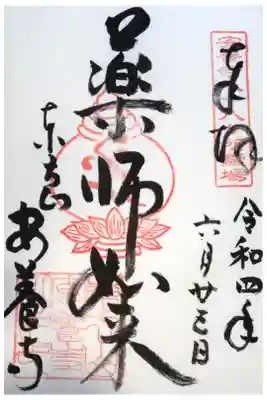 奉拝
令和四年
六月廿三日
薬師如来
東高山
安養寺